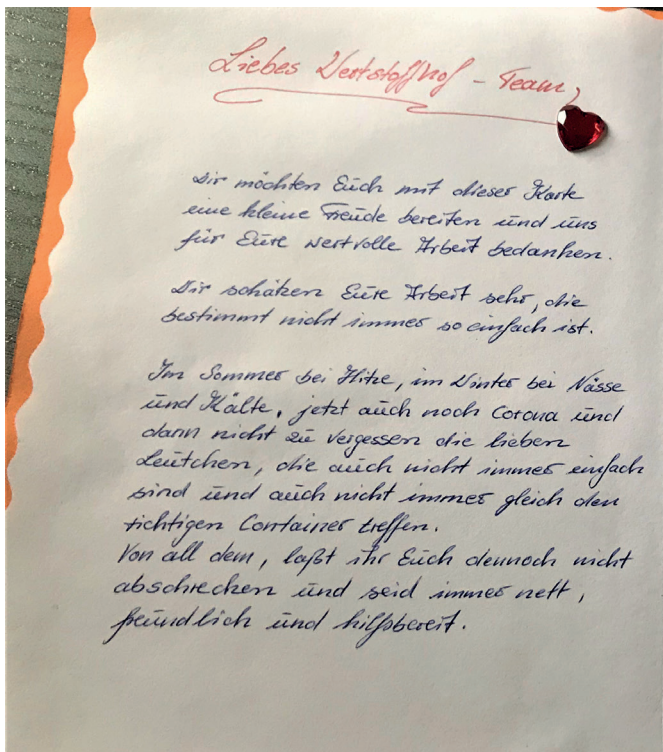 Liebes Wertstoffhof - Team,
Wir möchten Euch mit dieser Karte
eine kleine Freude bereiten und uns
für Eure wertvolle Arbeit bedanken.
Wir schätzen Eure Arbeit sehr, die
bestimmt nicht immer so einfach ist.
Im Sommer bei Hitze, im Winter bei Nässe
und Kälte, jetzt auch noch Corona und
dann nicht zu vergessen die lieben
Leutchen, die auch nicht immer einfach
sind und auch nicht immer gleich den
richtigen Container treffen.
Von all dem, laßt ihr Euch dennoch nicht
abschrecken und seid immer nett,
freundlich und hilfsbereit.